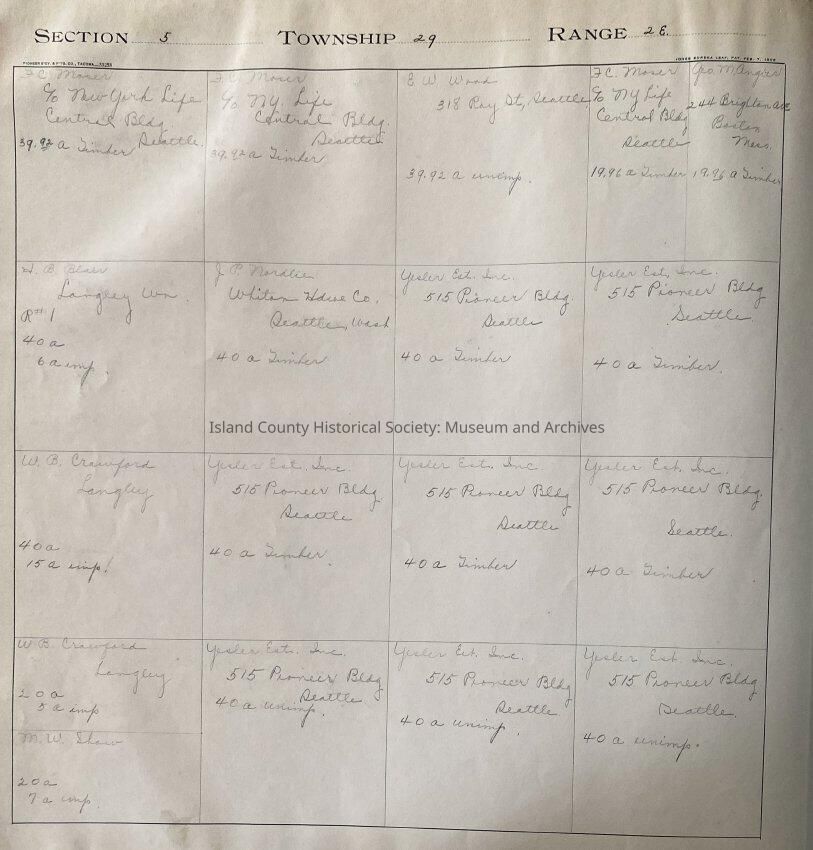 SECTION 5 TOWNSHIP 29 RANGE 2E.
F.C. Moser
c/o New York Life
Central Bldg
Seattle.
39.92 a Timber
F.C. Moser
c/o N.Y. Life
Central Bldg.
Seattle
39.92 a Timber
E. W. Wood
318 Roy St, Seattle
39.92 a unimp.
F.C. Moser
c/o NY Life
Central Bldg
Seattle
19.96 a Timber
Geo. M Angier
244 Brighton ave
Boston
Mass.
19.96 a Timber
H. B. Blair
Langley Wn.
R#1
40 a
6 a imp.
J. P. Nordlie
Whiton Hdwe Co.
Seattle, Wash
40 a Timber
Yesler Est. Inc.
515 Pioneer Bldg.
Seattle
40 a Timber
Yesler Est, Inc.
515 Pioneer Bldg
Seattle
40 a Timber.
Island County Historical Society: Museum and Archives
W. B. Crawford
Langley
40 a
15 a imp!
Yesler Est. Inc.
515 Pioneer Bldg.
Seattle
40 a Timber.
Yesler Est. Inc
515 Pioneer Bldg
Seattle
40 a Timber
Yesler Est. Inc.
515 Pioneer Bldg.
Seattle.
40 a Timber
W. B. Crawford
Langley
20 a
5 a imp
M. W. Shaw
20 a
7 a imp.
Yesler Est. Inc.
515 Pioneer Bldg
Seattle
40 a unimp.
Yesler Est. Inc.
515 Pioneer Bldg
Seattle
40 a unimp.
Yesler Est Inc.
515 Pioneer Bldg
Seattle.
40 a unimp.